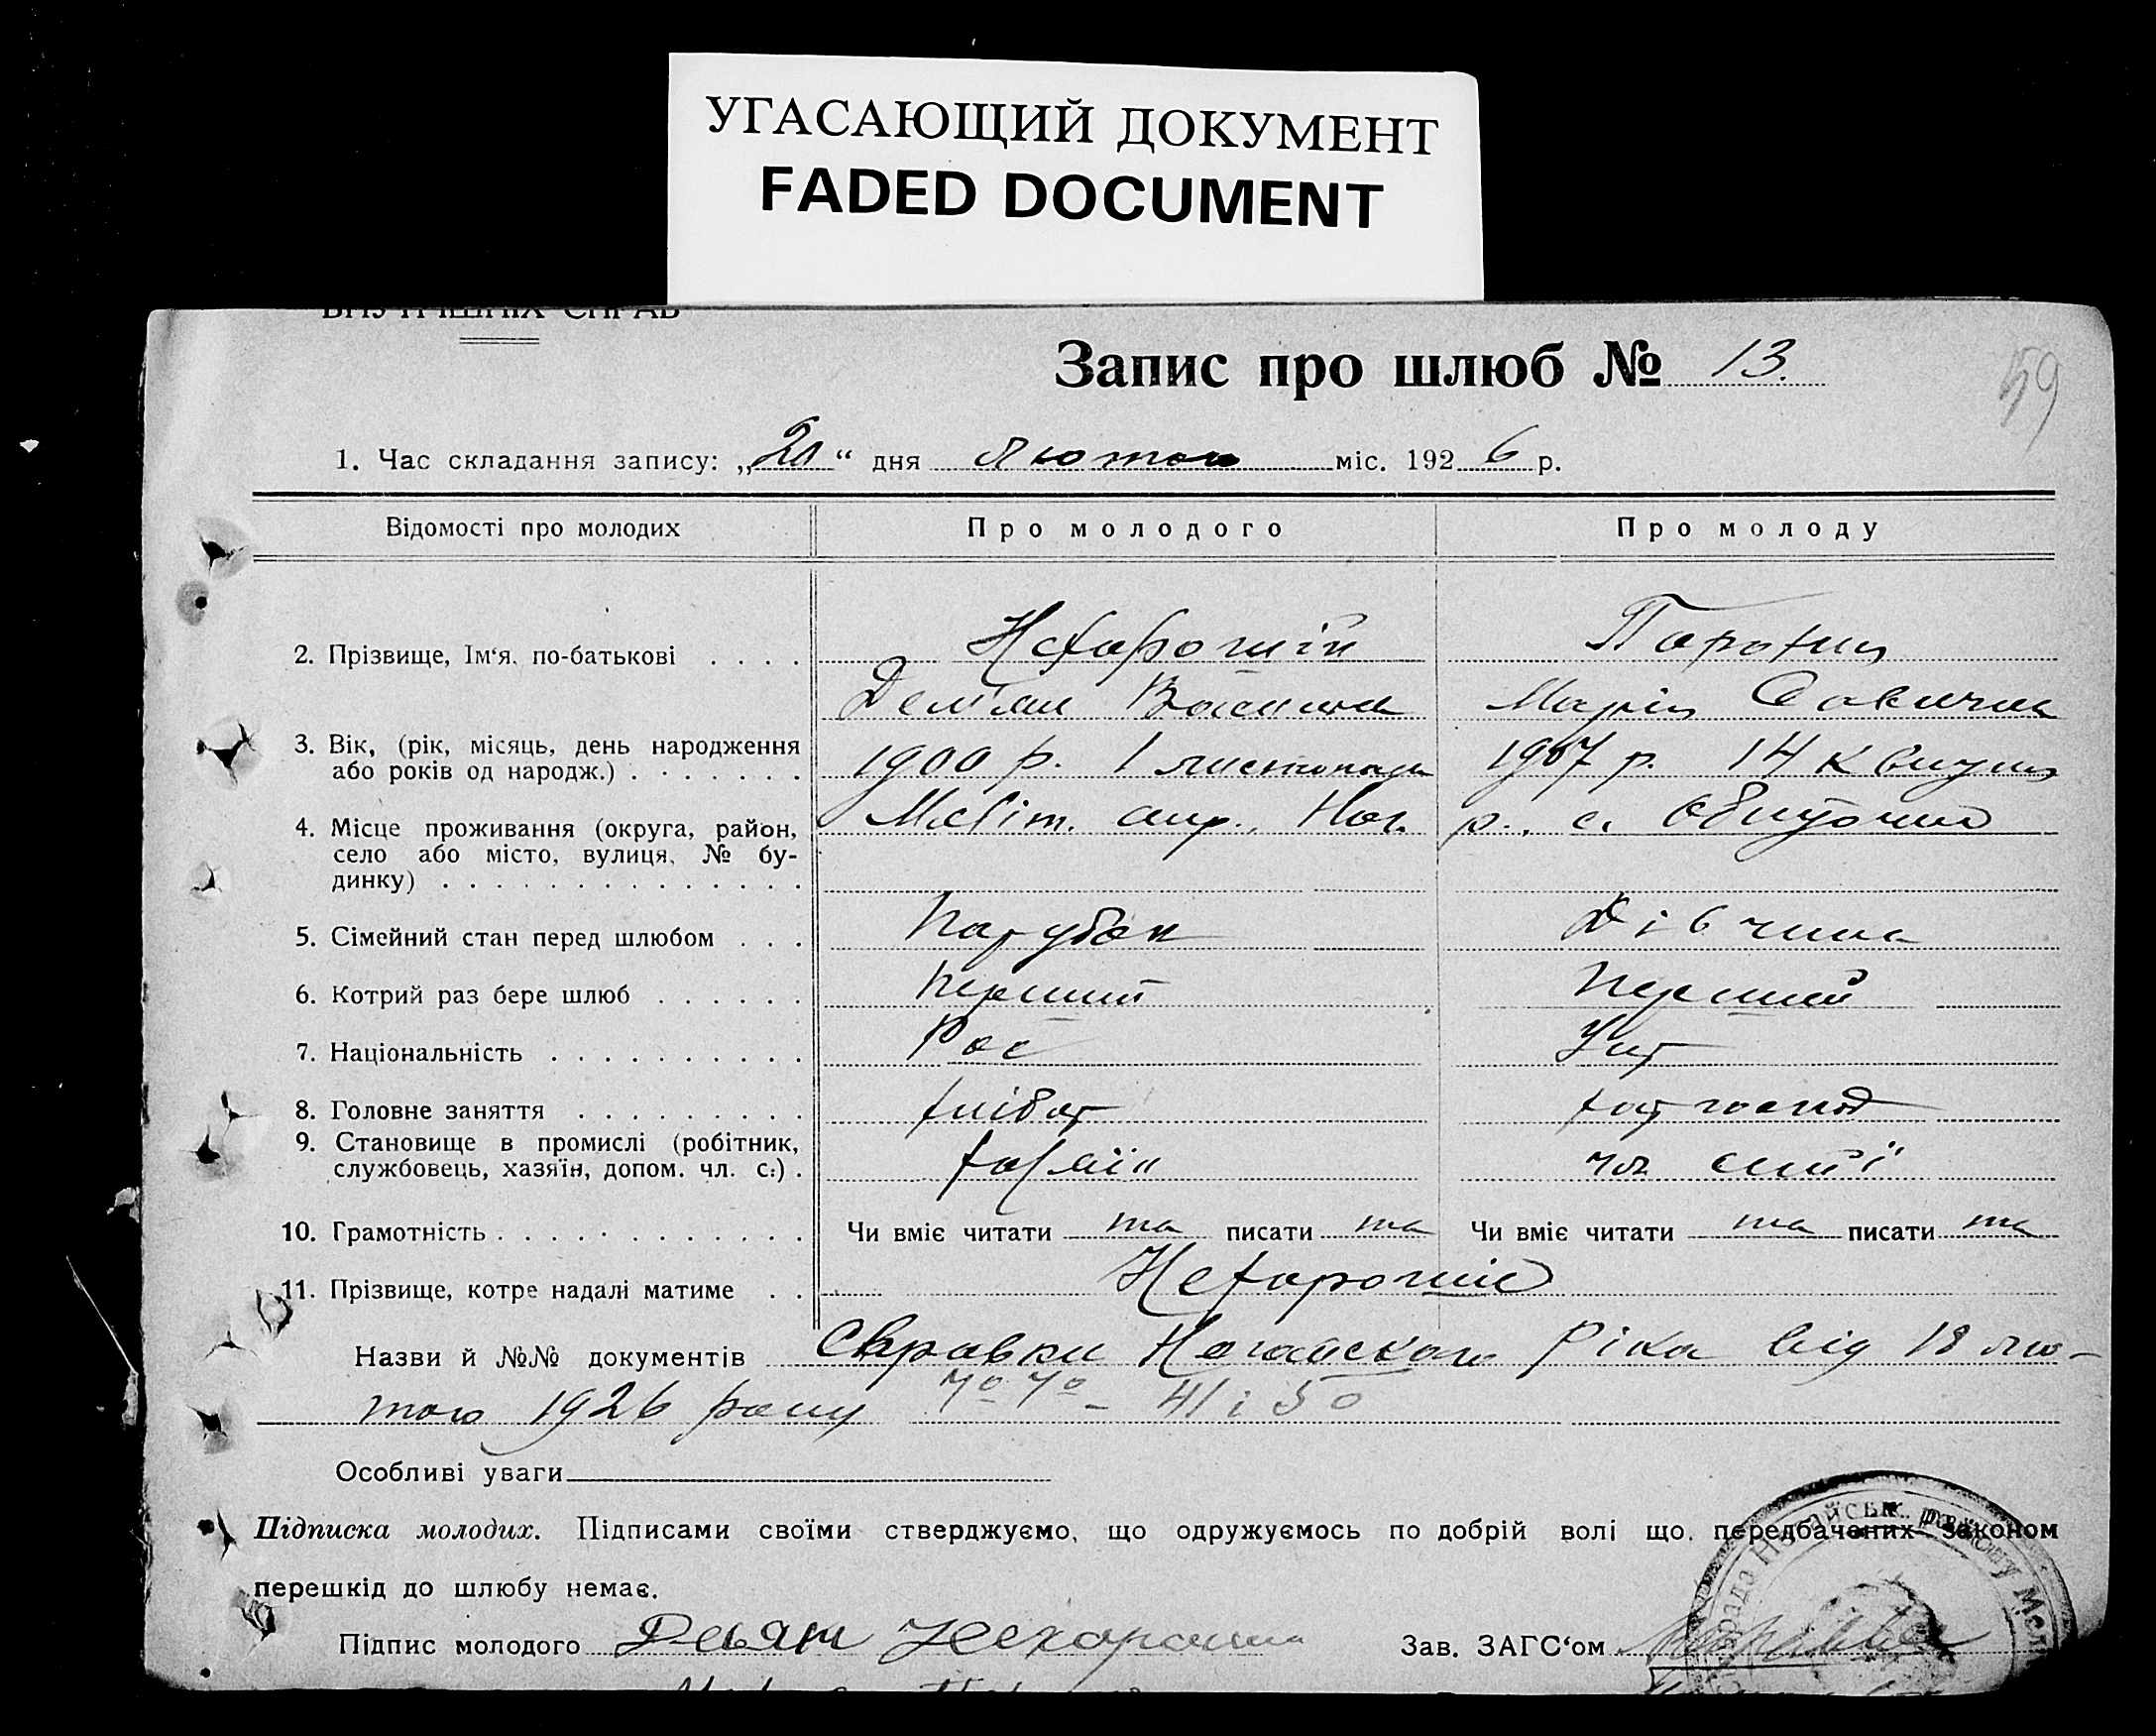 УГАСАЮЩИЙ ДОКУМЕНТ
FADED DOCUMENT
ВНУТРІШНІХ СПРАВ
Запис про шлюб № 13.
59
1. Час складання запису: „20“ дня лютого міс. 1926 р.
Відомості про молодих Про молодого Про молоду
2. Прізвище, Ім‘я, по-батькові . . . . Нехорошій
Дем'ян Марія
3. Вік, (рік, місяць, день народження
або років од народж.) . . . . . . . 1900 р. 1 листопада 1907 р. 14 квітня
4. Місце проживання (округа, район,
село або місто, вулиця, № бу-
динку) . . . . . . . . . . . . . . Меліт. окр., Ног. р., с. Обиточне
5. Сімейний стан перед шлюбом . . . Парубок Дівчина
6. Котрий раз бере шлюб . . . . . . Перший Перший
7. Національність . . . . . . . . . . Рос Укр
8. Головне заняття . . . . . . . . . хлібор
9. Становище в промислі (робітник,
службовець, хазяїн, допом. чл. с.) . хазяїн чл сим'ї
10. Грамотність . . . . . . . . . . . . Чи вміє читати та писати та Чи вміє читати та писати та
11. Прізвище, котре надалі матиме . . Нехороший
Назви й №№ документів Справки Ногайского Ріка від 18 лю-
того 1926 року №№ 41 і 50
Особливі уваги
Підписка молодих. Підписами своїми стверджуємо, що одружуємось по добрій волі що. передбачених законом
перешкід до шлюбу немає.
Підпис молодого Зав. ЗАГС‘ом